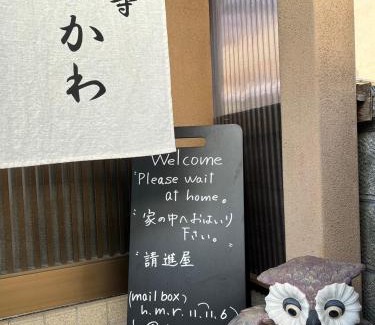 かわ
Welcome
"Please wait
at home。
"家の中へおはいり
下さい。"
"請進屋
(mail box)
h.m.r.11.11.6)